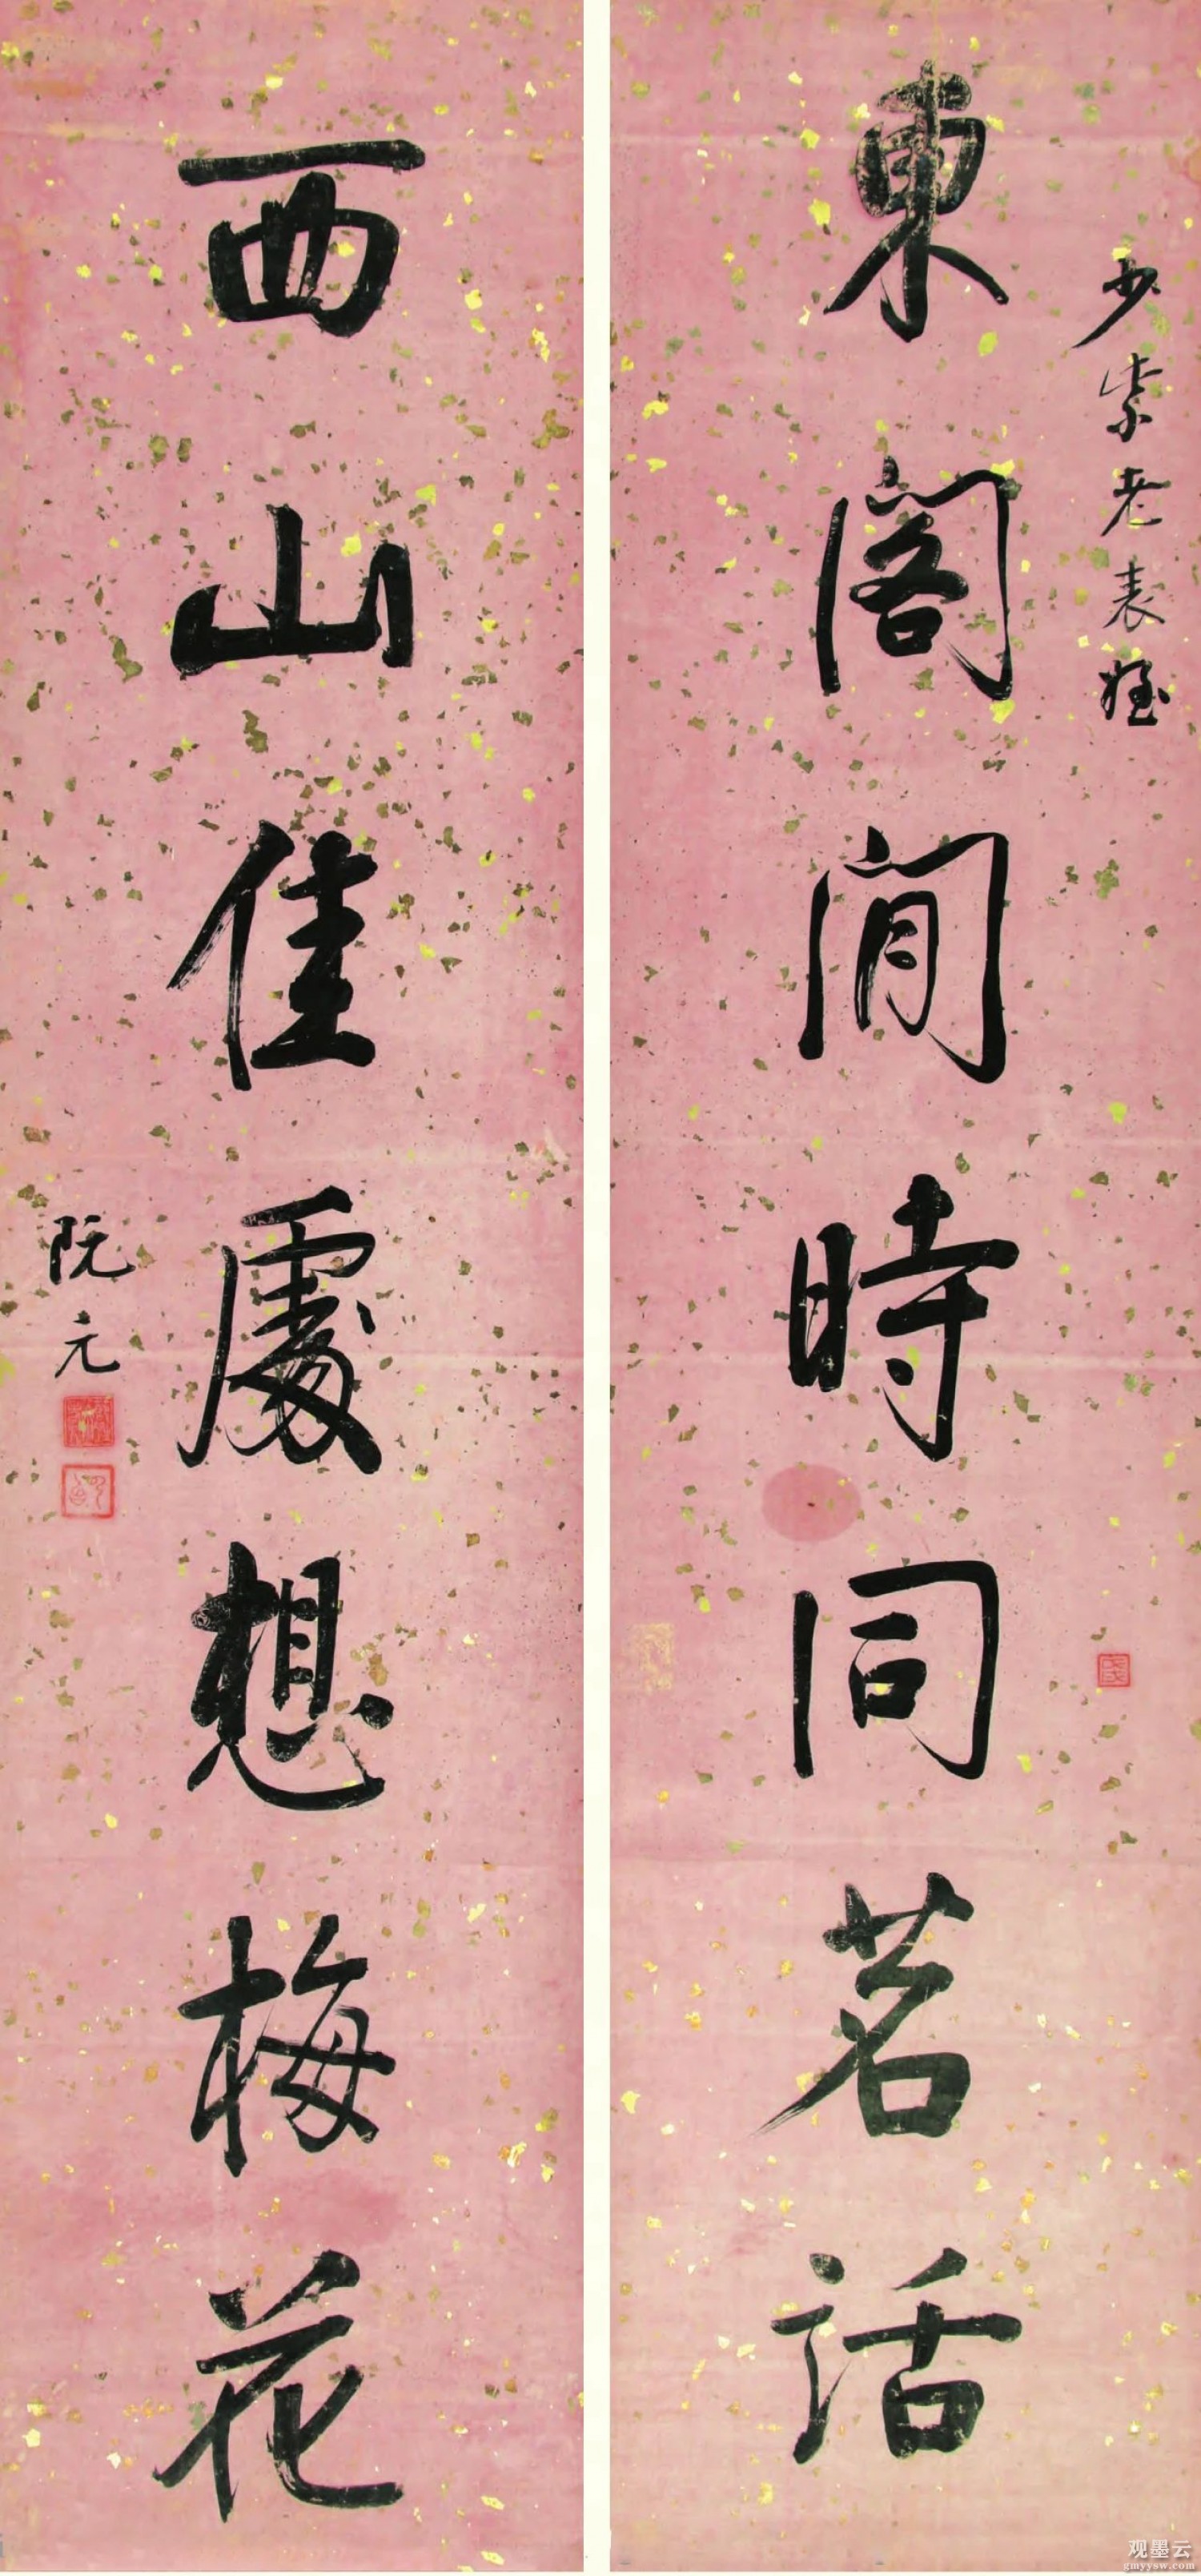 少紫老表姪
東閣閒時同茗話
西山佳處想梅花
阮元
观墨云
gmyysw.com